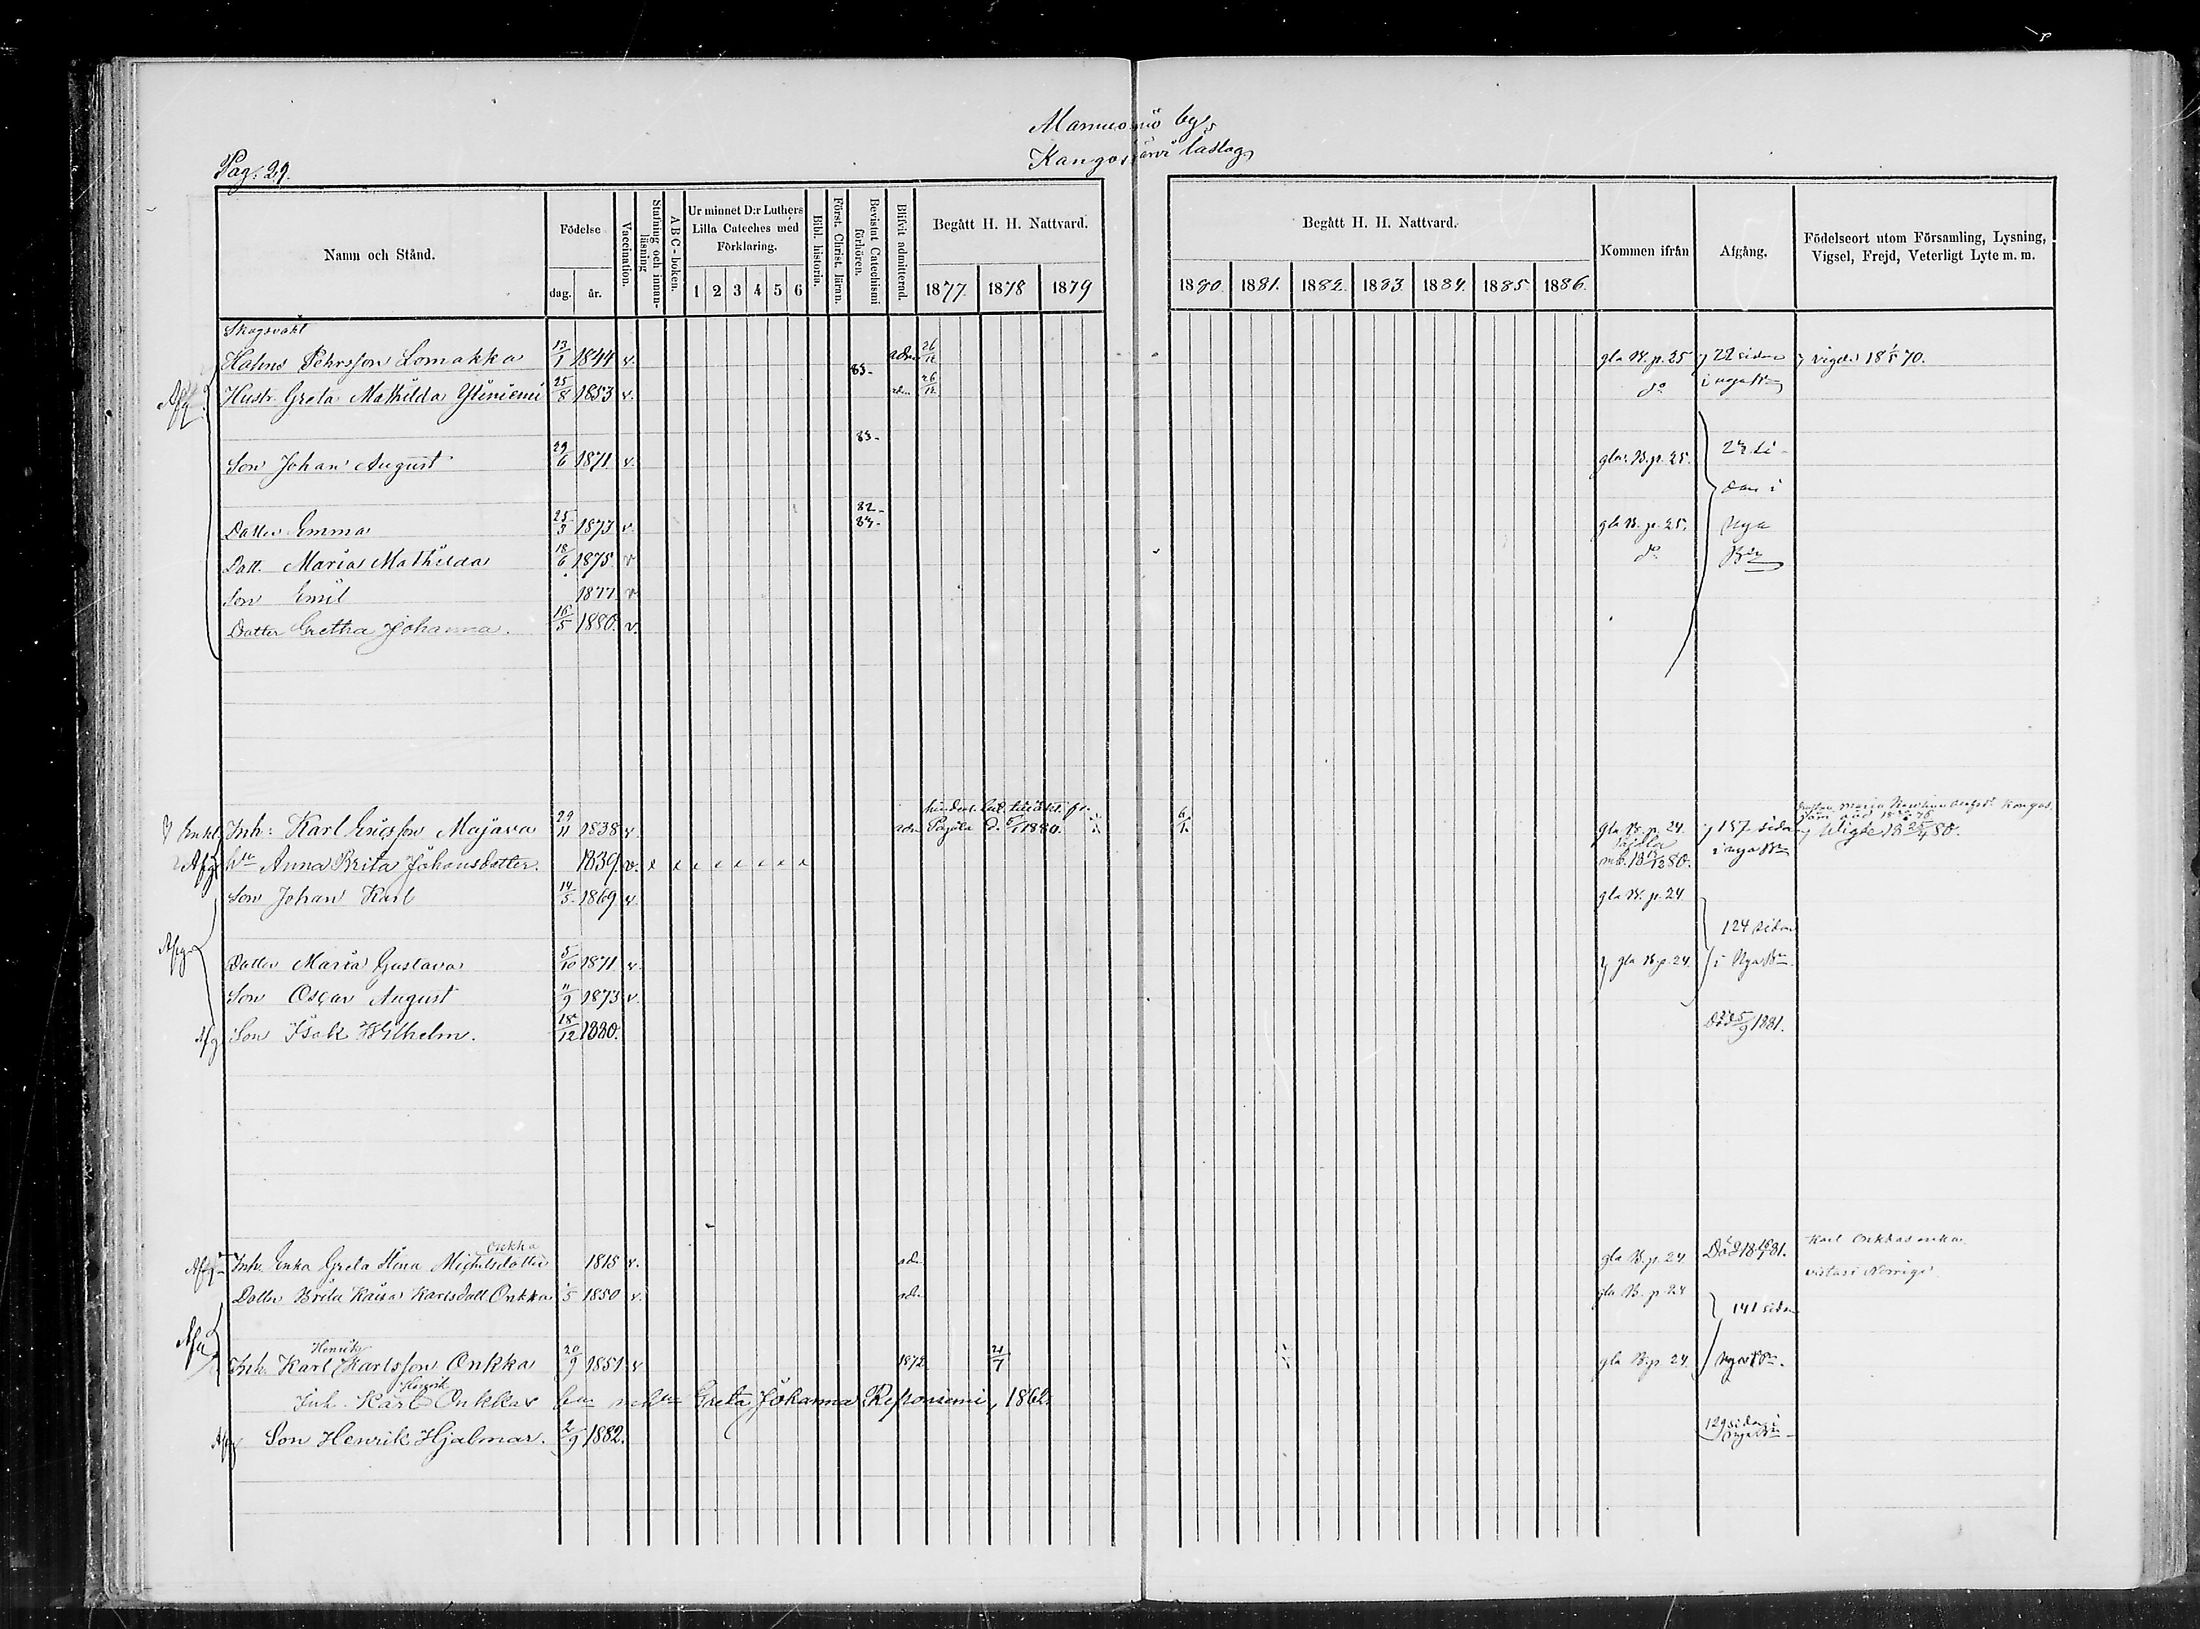 Pag. 29.
Muonionio by,
Kangosjärvi laslag
Namn och Stånd.
Födelse
dag.
år.
Vaccination.
Stafning och innan-läsning
ABC-boken.
Ur minnet D:r Luthers
Lilla Cateches med
Förklaring.
1 2 3 4 5 6
Bibl. historia.
Först. Christ. läran.
Bevistat Catechismi förhören.
Blifvit admitterad.
Begått H. H. Nattvard.
1877. 1878 1879
Begått H. H. Nattvard.
1880. 1881. 1882. 1883. 1884. 1885. 1886.
Kommen ifrån
Afgång.
Födelseort utom Församling, Lysning,
Vigsel, Frejd, Veterligt Lyte m. m.
Skogsvakt
Pehrsson Lomakka 13/1 1844 v. 83- adm 26/12 gla B. p. 25 22 sidan vigde 18 1/5 70.
Afg. Hustr. Greta Mathilda Yliniemi 25/8 1853 v. adm 26/12 do i nya Bn
Son Johan August 29/6 1871 v. 83- gla B. p. 25. 22 si-
dan i
Dotter Emma 25/3 1873 v. 82- 83- gla B. p. 25. Nya
Dott. Maria Mathilda 18/6 1875 v do Bn
Son Emil 1877 v
Dotter Gretha Johanna. 16/5 1880. v.
Enkl. Inh: Karl Ericsson Majava 29/11 1838 v. adm Pajala d. 1880. 6/1 gla B. p. 24. 157 sidan Vigde 18 25/4 80.
Afg. Anna Brita Johansdotter. 1839. v. i nya Bn
Son Johan Karl 14/5 1869 v. gla B. p. 24
124 sidan
Afg Dotter Maria Gustava 5/10 1871 v. gla B. p. 24. i Nya Bn.
Son Oscar August 11/9 1873 v.
Afg Son Isak Wilhelm. 18/12 1880. Död 25/9 1881.
Onkka
Afg Inh. Enka Greta Mickelsdotter 1815 v. adm gla B. p. 24 Karl Onkkas enka
vistas i Norrige
Dotter Brita Kaisa Karlsdott Onkka 5 1850 v. adm gla B. p. 24
141 sidan
Henrik
Inh. Karl Karlsson Onkka 20/9 1851 v 1872 21/7 gla B. p. 24. Nya Bn.
Henrik
Inh. Karl Onkkas Greta Johanna 1862.
Afg Son Henrik Hjalmar. 2/9 1882. 129 sidan i
nya Bn